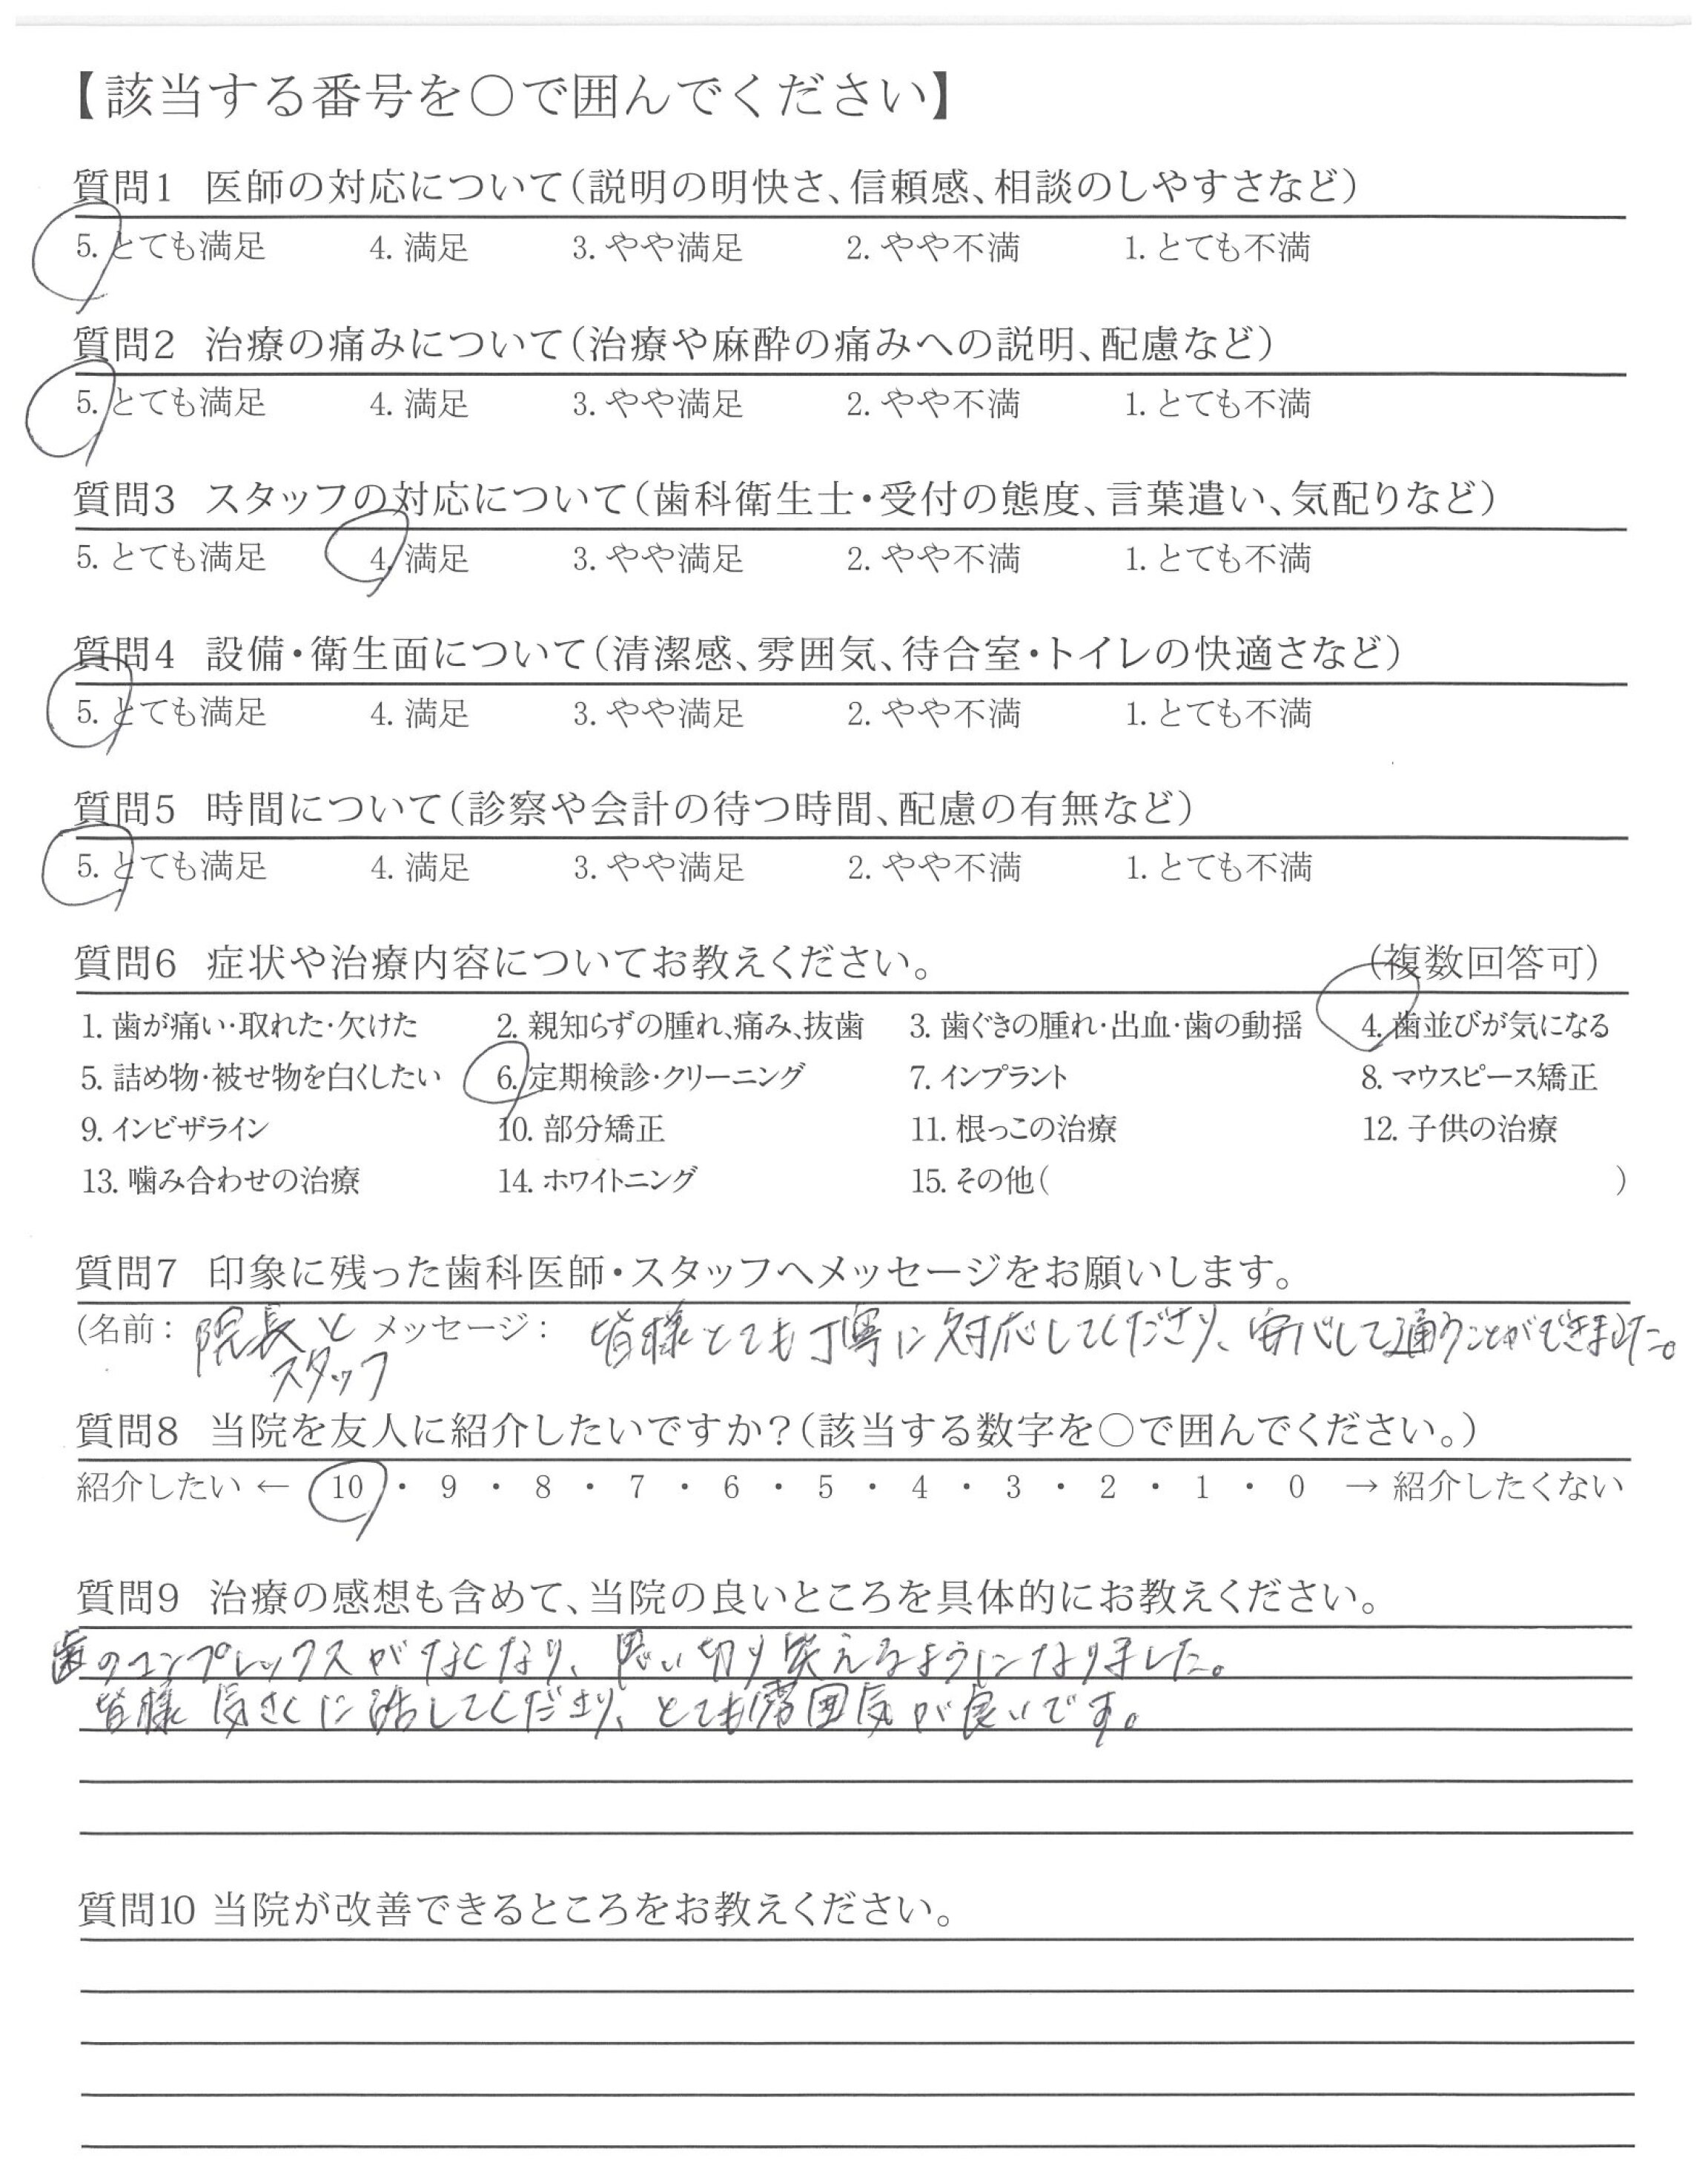 【該当する番号を○で囲んでください】
質問1 医師の対応について(説明の明快さ、信頼感、相談のしやすさなど)
5. とても満足 4. 満足 3. やや満足 2. やや不満 1. とても不満
質問2 治療の痛みについて(治療や麻酔の痛みへの説明、配慮など)
5. とても満足 4. 満足 3. やや満足 2. やや不満 1. とても不満
質問3 スタッフの対応について(歯科衛生士・受付の態度、言葉遣い、気配りなど)
5. とても満足 4. 満足 3. やや満足 2. やや不満 1. とても不満
質問4 設備・衛生面について(清潔感、雰囲気、待合室・トイレの快適さなど)
5. とても満足 4. 満足 3. やや満足 2. やや不満 1. とても不満
質問5 時間について(診察や会計の待つ時間、配慮の有無など)
5. とても満足 4. 満足 3. やや満足 2. やや不満 1. とても不満
質問6 症状や治療内容についてお教えください。 (複数回答可)
1. 歯が痛い・取れた・欠けた 2. 親知らずの腫れ、痛み、抜歯 3. 歯ぐきの腫れ・出血・歯の動揺 4. 歯並びが気になる
5. 詰め物・被せ物を白くしたい 6. 定期検診・クリーニング 7. インプラント 8. マウスピース矯正
9. インビザライン 10. 部分矯正 11. 根っこの治療 12. 子供の治療
13. 噛み合わせの治療 14. ホワイトニング 15. その他( )
質問7 印象に残った歯科医師・スタッフへメッセージをお願いします。
(名前: 院長と メッセージ: 皆様とても丁寧に対応してくださり、安心して通うことができました。
スタッフ
質問8 当院を友人に紹介したいですか?(該当する数字を○で囲んでください。)
紹介したい ← 10 ・ 9 ・ 8 ・ 7 ・ 6 ・ 5 ・ 4 ・ 3 ・ 2 ・ 1 ・ 0 → 紹介したくない
質問9 治療の感想も含めて、当院の良いところを具体的にお教えください。
歯のコンプレックスがなくなり、思い切り笑えるようになりました。
皆様気さくに話してくださり、とても雰囲気が良いです。
質問10 当院が改善できるところをお教えください。